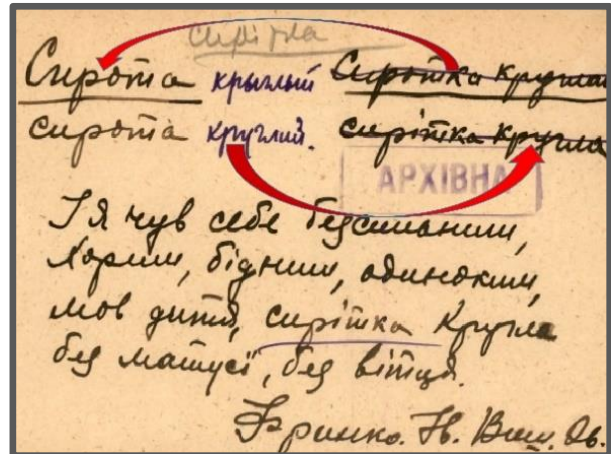 сирітка
Сирота круглый Сиротка круглая
сирота круглий. сирітка кругла
АРХІВНА
І я чув себе безсильним,
Хорим, бідним, одиноким,
мов дитя, сирітка кругла
без матусі, без вітця.
Франко. Ів. Виш. 26.